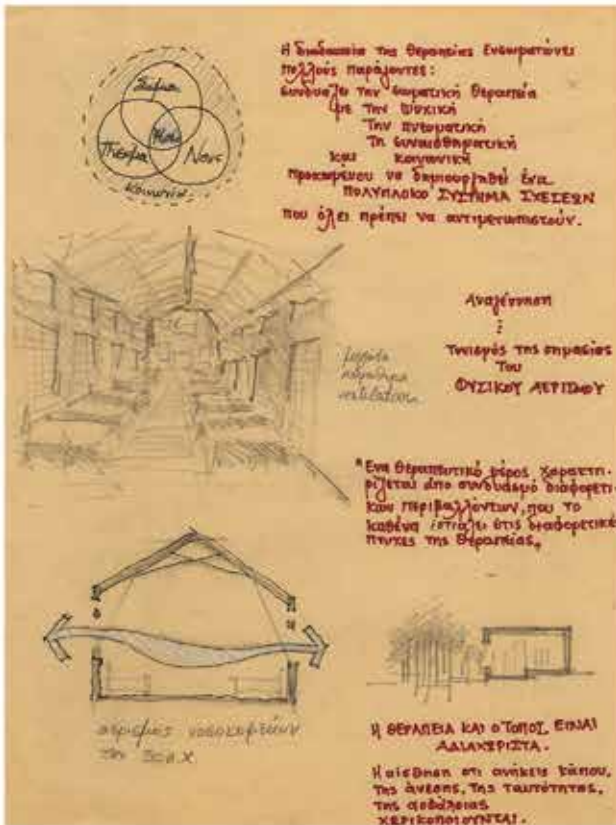 Σώμα
Πνεύμα
Νους
Κοινωνία
Η διαδικασία της θεραπείας ενσωματώνει
πολλούς παράγοντες:
συνδυάζει την σωματική θεραπεία
με την ψυχική
την πνευματική
τη συναισθηματική
και κοινωνική
προκειμένου να δημιουργηθεί ένα
ΠΟΛΥΠΛΟΚΟ ΣΥΣΤΗΜΑ ΣΧΕΣΕΩΝ
που όλες πρέπει να αντιμετωπιστούν.
παράθυρα
ventilation
Αναγέννηση
:
Τονισμός της σημασίας
του
ΦΥΣΙΚΟΥ ΑΕΡΙΣΜΟΥ
"Ενα θεραπευτικό μέρος χαρακτη-
ρίζεται απο συνδυασμό διαφορετι-
κών περιβαλλόντων, που το
καθένα εστιάζει στις διαφορετικές
πτυχές της θεραπείας.
αερισμος νοσοκομείων
Η ΘΕΡΑΠΕΙΑ ΚΑΙ Ο ΤΟΠΟΣ ΕΙΝΑΙ
ΑΔΙΑΧΩΡΙΣΤΑ.
Η αίσθηση οτι ανήκεις κάπου,
της άνεσης, της ταυτότητας,
της ασφάλειας